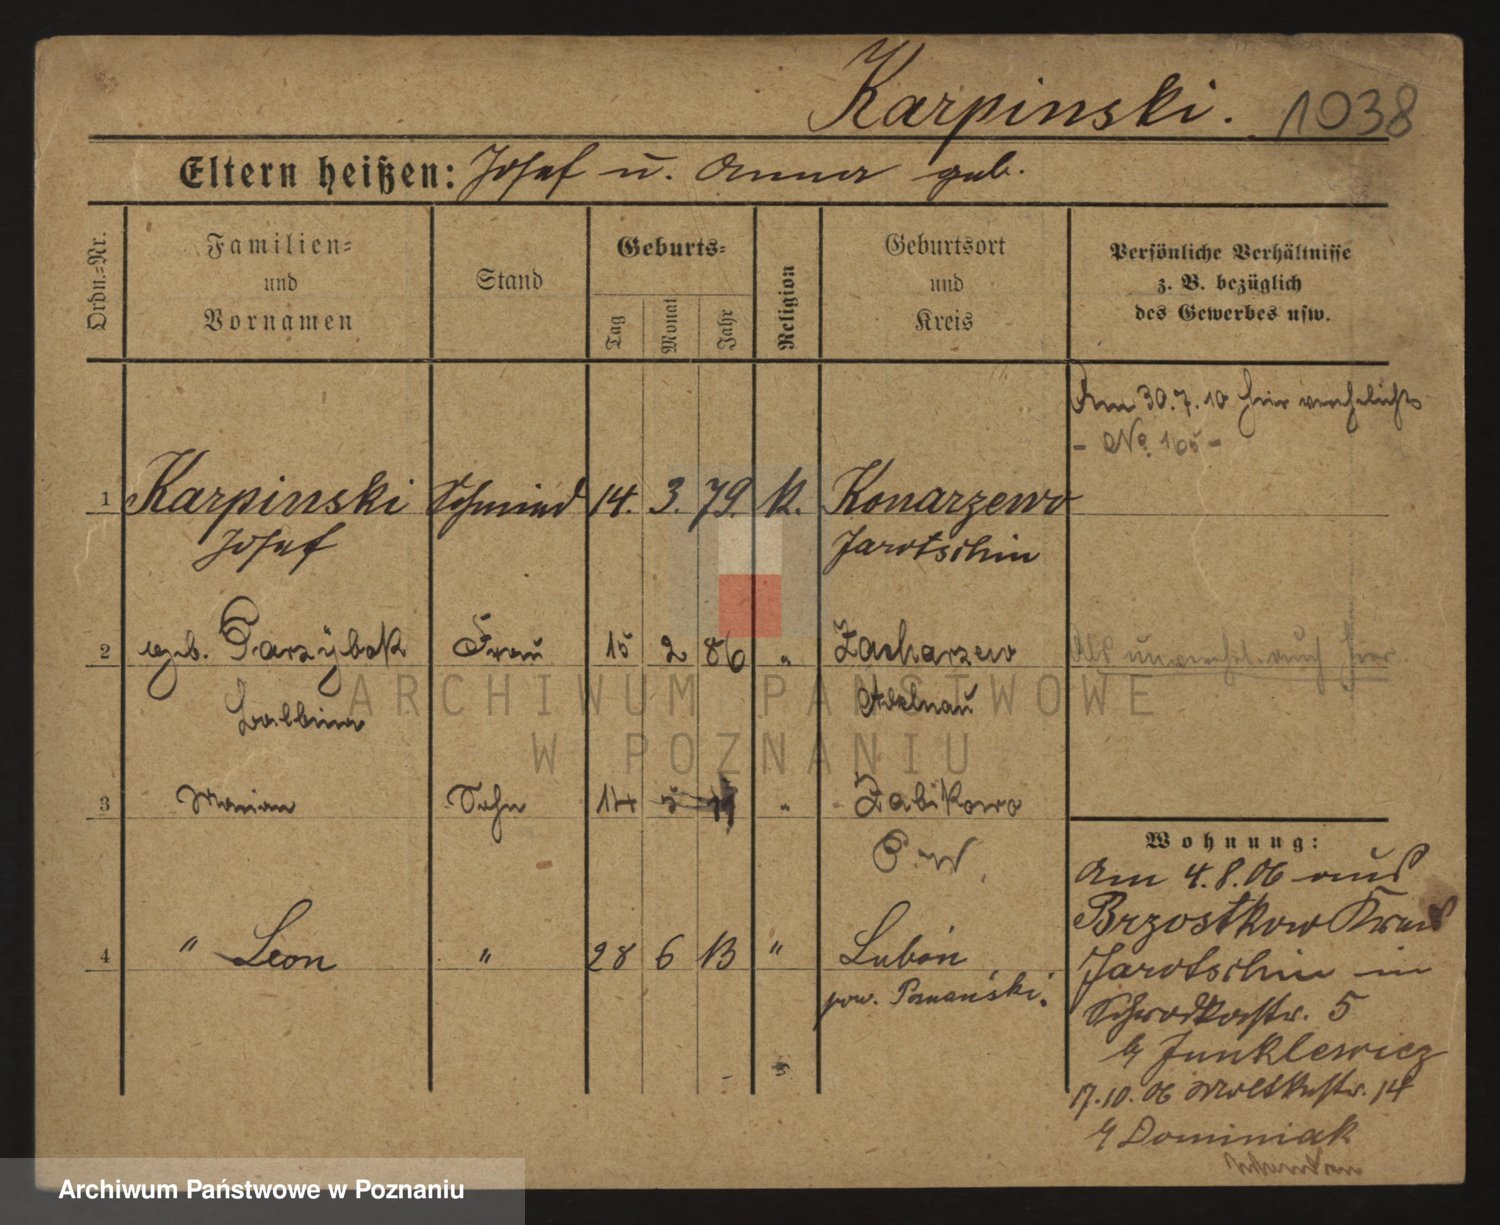 Karpinski. 1038
Eltern heißen: Josef u. Anna geb.
Ordn.=Nr.
Familien=
und
Vornamen
Stand
Geburts=
Tag
Monat
Jahr
Religion
Geburtsort
und
Kreis
Persönliche Verhältnisse
z. B. bezüglich
des Gewerbes usw.
Am 30.7.10 hier verehelicht
- No. 165 -
1 Karpinski Schmied 14. 3. 79. k. Konarzewo
Josef Jarotschin
2 geb. Parzybok Frau 15 2 86 " Zacharzew
Balbina Adelnau
3 Marian Sohn 14 5 11 " Zabikowo
P. W.
4 " Leon " 28 6 13 " Luboń
pow. Poznański.
Wohnung:
Am 4.8.06 aus
Brzostkow Kreis
Jarotschin in
Schrodkastr. 5
b/ Junklewicz
17.10.06 Moltkestr. 14
b/ Dominiak
ARCHIWUM PAŃSTWOWE
W POZNANIU
Archiwum Państwowe w Poznaniu